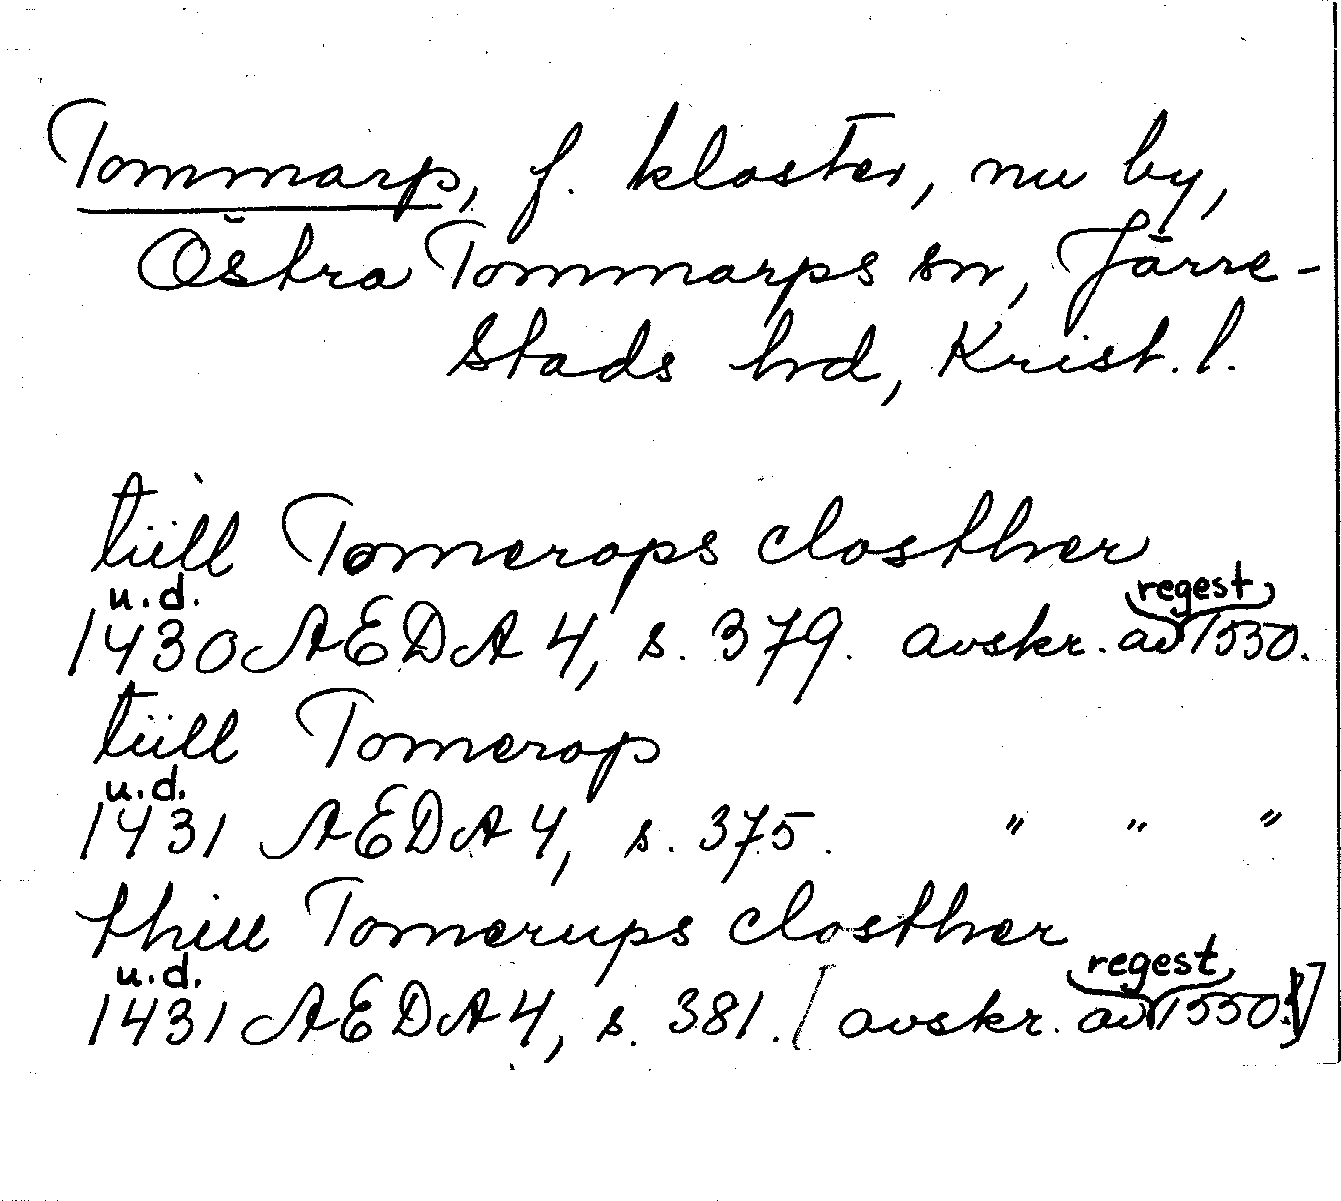 Tommarp, f. kloster, nu by,
Östra Tommarps sn, Järre-
stads hrd, Krist. l.
tiill Tomerops closther
u.d. regest
1430 AEDA 4, s. 379. avskr. av 1550.
tiill Tomerop
u.d.
1431 AEDA 4, s. 375. " " "
thill Tomerups closther
u.d. regest
1431 AEDA 4, s. 381. [avskr. av 1550.]